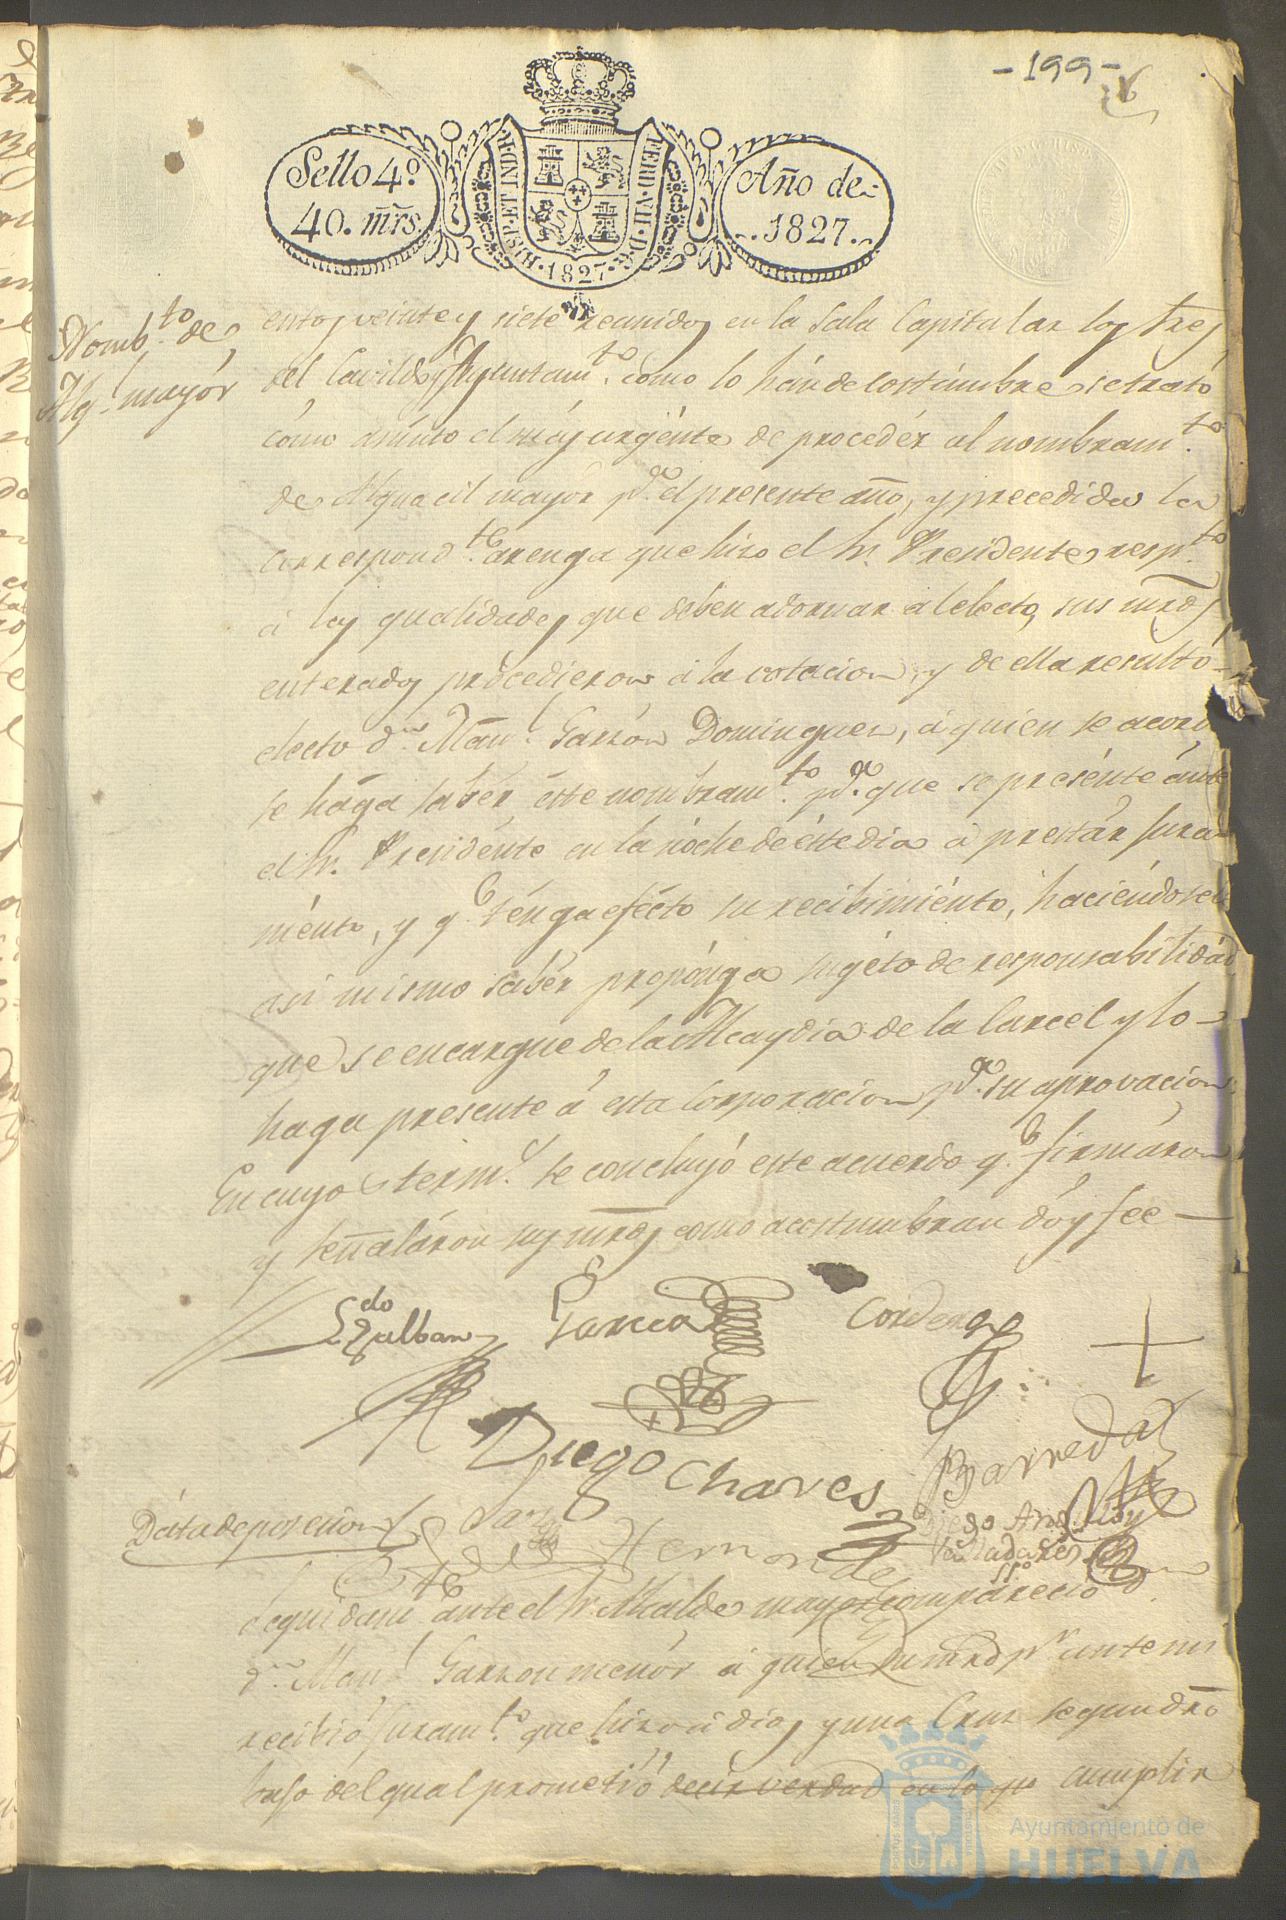 -199-
Sello 4º
40. mrs.
HISP. ET IND. R.
FERD. VII. D. G.
1827
Año de
1827.
Nomb.to de
Alg.l mayór
entos veinte y siete reunidos en la Sala Capitular los Sres
del Cavildo y Ayuntam.to como lo hán de costúmbre se trató
cómo asúnto el más urgénte de procedér al nombram.to
de Alguacil mayór p.a el presente año, y precedida la
correspond.te arenga que hizo el Sr. Presidente resp.to
á las qualidades que deben adornar al electo, sus mrds
enterados procedieron á la votacion, y de ella resultó
electo d.n Man.l Garzón Dominguez, á quien se acordó
se hága sabér éste nombram.to p.a que se presénte ánte
el Sr. Presidénte en la nóche de éste dia á prestár jura
ménto, y q.e ténga efécto su recibimiénto, haciéndosele
asi mismo sabér propónga sugéto de responsabilidád
que se encargue de la Alcaydia de la Carcel y lo
haga presente á esta Corporacion p.a su aprovacion
En cuyo term.o se concluyó este acuerdo q.e firmáron
y señaláron sus mrds como acostumbran doy fee
L.do Zalban Garcia Cordero
Diego Chaves Barreda
Hernandez
Diego Ant.o
Valladares
SS.no
Dáta de posesion
Seguidam.te ante el Sr. Alcalde mayor compareció
d.n Man.l Garzon menór á quien su mrd p.r ante mi
recibió juram.to que hizo á Dios y una Cruz segun dró
bajo del qual prometió decir verdad en lo q.e cumplir
Ayuntamiento de
HUELVA